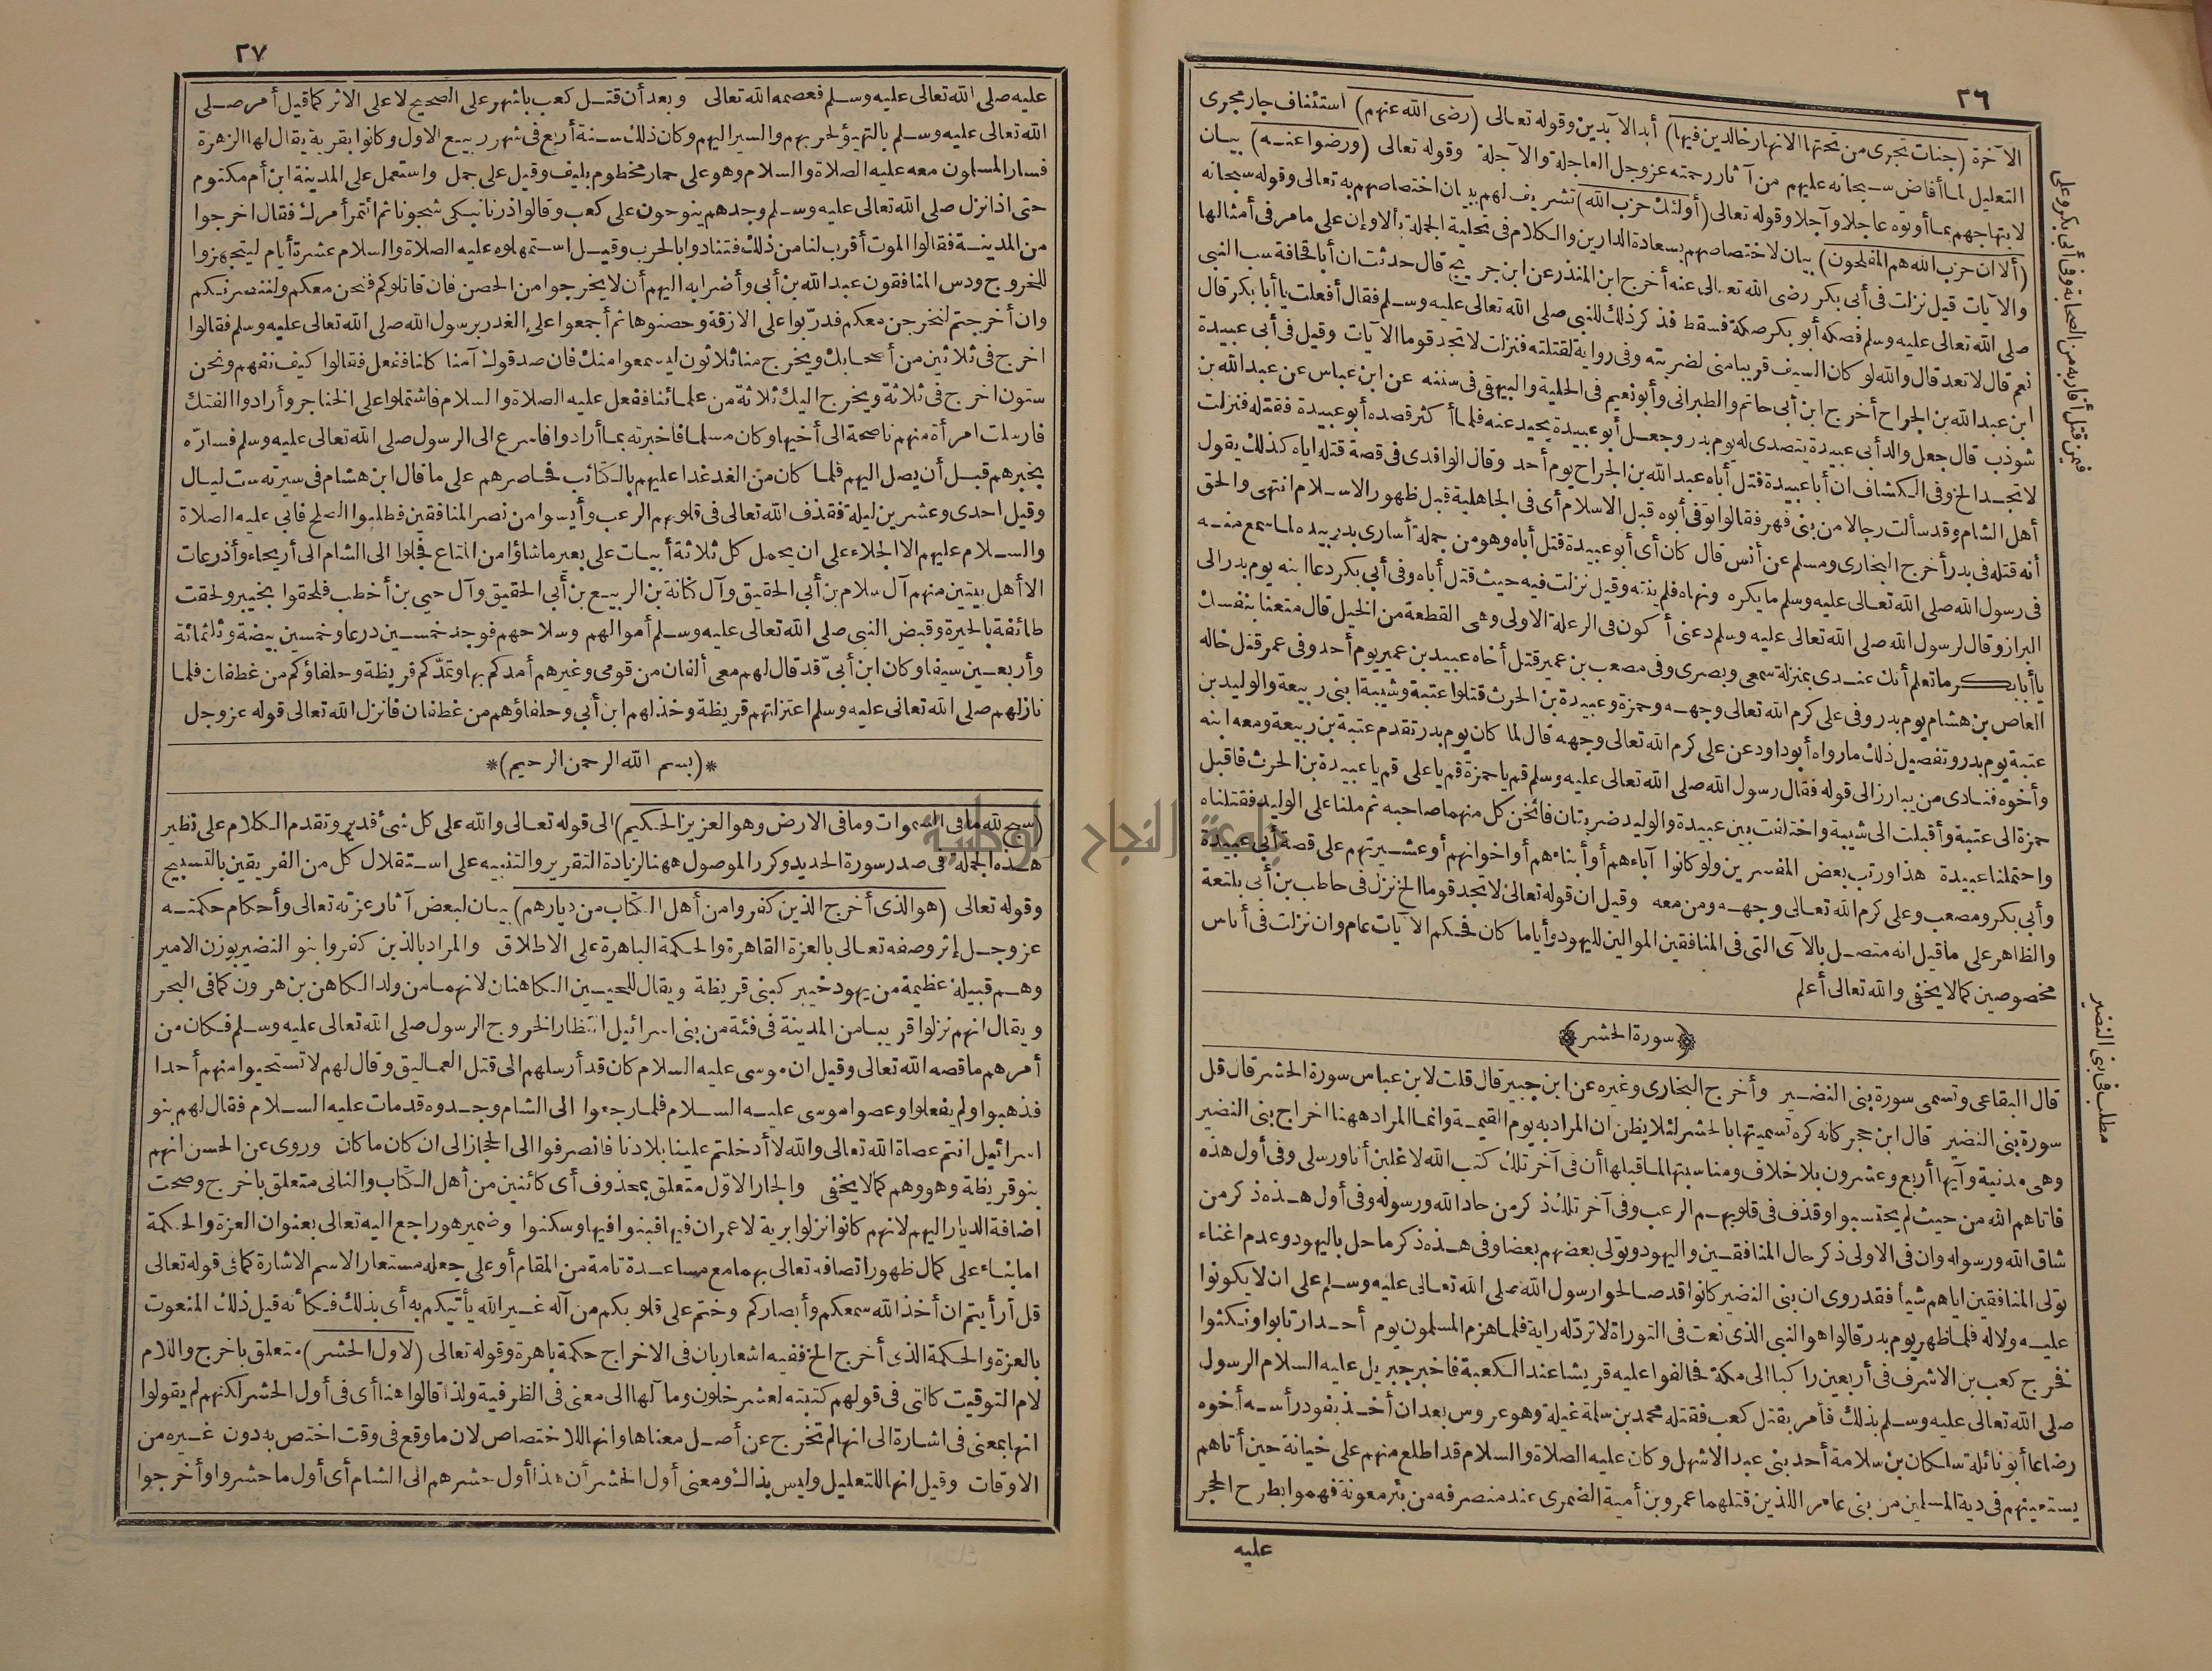 ٢٦
الآخرة (جنات تجرى من تحتها الانهار خالدين فيها) أبد الآبدين وقوله تعالى (رضى الله عنهم) استئناف جار مجرى
التعليل لما أفاض سبحانه عليهم من آثار رحمته عز وجل العاجلة والآجلة وقوله تعالى (ورضوا عنه) بيان
لابتهاجهم بما أوتوه عاجلا وآجلا وقوله تعالى (أولئك حزب الله) تشريف لهم ببيان اختصاصهم به تعالى وقوله سبحانه
(ألا ان حزب الله هم المفلحون) بيان لاختصاصهم بسعادة الدارين والكلام فى تحلية الجملة بألا وإن على ما مر فى أمثالها
والآيات قيل نزلت فى أبى بكر رضى الله تعالى عنه أخرج ابن المنذر عن ابن جريج قال حدثت ان أبا قحافة سب النبى
صلى الله تعالى عليه وسلم فصكه أبو بكر صكة فسقط فذكر ذلك للنبى صلى الله تعالى عليه وسلم فقال أفعلت يا أبا بكر قال
نعم قال لا تعد قال والله لو كان السيف قريبا منى لضربته وفى رواية لقتلته فنزلت لا تجد قوما الآيات وقيل فى أبى عبيدة
ابن عبد الله بن الجراح أخرج ابن أبى حاتم والطبرانى وأبو نعيم فى الحلية والبيهقى فى سننه عن ابن عباس عن عبد الله بن
شوذب قال جعل والد أبى عبيدة يتصدى له يوم بدر وجعل أبو عبيدة يحيد عنه فلما أكثر قصده أبو عبيدة فقتله فنزلت
لا تجد الخ وفى الكشاف ان أبا عبيدة قتل أباه عبد الله بن الجراح يوم أحد وقال الواقدى فى قصة قتله اياه كذلك يقول
أهل الشام وقد سألت رجالا من بنى فهر فقالوا توفى أبوه قبل الاسلام أى فى الجاهلية قبل ظهور الاسلام انتهى والحق
أنه قتله فى بدر أخرج البخارى ومسلم عن أنس قال كان أى أبو عبيدة قتل أباه وهو من جملة أسارى بدر بيده لما سمع منه
فى رسول الله صلى الله تعالى عليه وسلم ما يكره ونهاه فلم ينته وقيل نزلت فيه حيث قتل أباه وفى أبى بكر دعا ابنه يوم بدر الى
البراز وقال لرسول الله صلى الله تعالى عليه وسلم دعنى أكون فى الرعلة الاولى وهى القطعة من الخيل قال متعنا بنفسك
يا أبا بكر ما تعلم أنك عندى بمنزلة سمعى وبصرى وفى مصعب بن عمير قتل أخاه عبيد بن عمير يوم أحد وفى عمر قتل خاله
العاص بن هشام يوم بدر وفى على كرم الله تعالى وجهه وحمزة وعبيدة بن الحرث قتلوا عتبة وشيبة ابنى ربيعة والوليد بن
عتبة يوم بدر وتفصيل ذلك ما رواه أبو داود عن على كرم الله تعالى وجهه قال لما كان يوم بدر تقدم عتبة بن ربيعة ومعه ابنه
وأخوه فنادى من يبارز الى قوله فقال رسول الله صلى الله تعالى عليه وسلم قم يا حمزة قم يا على قم يا عبيدة بن الحرث فاقبل
حمزة الى عتبة وأقبلت الى شيبة واختلفت بين عبيدة والوليد ضربتان فاثخن كل منهما صاحبه ثم ملنا على الوليد فقتلناه
واحتملنا عبيدة هذا ورتب بعض المفسرين ولو كانوا آباءهم أو أبناءهم أو اخوانهم أو عشيرتهم على قصة أبى عبيدة
وأبى بكر ومصعب وعلى كرم الله تعالى وجهه ومن معه وقيل ان قوله تعالى لا تجد قوما الخ نزل فى حاطب بن أبى بلتعة
والظاهر على ما قيل انه متصل بالآى التى فى المنافقين الموالين لليهود وأياما كان فحكم الآيات عام وان نزلت فى أناس
مخصوصين كما لا يخفى والله تعالى أعلم
﴿سورة الحشر﴾
قال البقاعى وتسمى سورة بنى النضير وأخرج البخارى وغيره عن ابن جبير قال قلت لابن عباس سورة الحشر قال قل
سورة بنى النضير قال ابن حجر كأنه كره تسميتها بالحشر لئلا يظن ان المراد به يوم القيمة وانما المراد ههنا اخراج بنى النضير
وهى مدنية وآيها أربع وعشرون بلا خلاف ومناسبتها لما قبلها أن فى آخر تلك كتب الله لأغلبن أنا ورسلى وفى أول هذه
فاتاهم الله من حيث لم يحتسبوا وقذف فى قلوبهم الرعب وفى آخر تلك ذكر من حاد الله ورسوله وفى أول هذه ذكر من
شاق الله ورسوله وان فى الاولى ذكر حال المنافقين واليهود وتولى بعضهم بعضا وفى هذه ذكر ما حل باليهود وعدم اغناء
تولى المنافقين اياهم شيأ فقد روى ان بنى النضير كانوا قد صالحوا رسول الله صلى الله تعالى عليه وسلم على ان لا يكونوا
عليه ولا له فلما ظهر يوم بدر قالوا هو النبى الذى نعت فى التوراة لا ترد له راية فلما هزم المسلمون يوم أحد ارتابوا ونكثوا
فخرج كعب بن الاشرف فى أربعين راكبا الى مكة فحالفوا عليه قريشا عند الكعبة فاخبر جبريل عليه السلام الرسول
صلى الله تعالى عليه وسلم بذلك فأمر بقتل كعب فقتله محمد بن سلمة غيلة وهو عروس بعد ان أخذ بفود رأسه أخوه
رضاعا أبو نائلة سلكان بن سلامة أحد بنى عبد الاشهل وكان عليه الصلاة والسلام قد اطلع منهم على خيانة حين أتاهم
يستعينهم فى دية المسلمين من بنى عامر اللذين قتلهما عمرو بن أمية الضمرى عند منصرفه من بئر معونة فهموا بطرح الحجر
عليه
فيمن قتل أقاربه من الصحابة وفى أبى بكر وعلى
مطلب فى بنى النضير
٢٧
عليه صلى الله تعالى عليه وسلم فعصمه الله تعالى وبعد أن قتل كعب باشهر على الصحيح لا على الاثر كما قيل أمر صلى
الله تعالى عليه وسلم بالتهيؤ لحربهم والسير اليهم وكان ذلك سنة أربع فى شهر ربيع الاول وكانوا بقرية يقال لها الزهرة
فسار المسلمون معه عليه الصلاة والسلام وهو على حمار مخطوم بليف وقيل على جمل واستعمل على المدينة ابن أم مكتوم
حتى اذا نزل صلى الله تعالى عليه وسلم وجدهم ينوحون على كعب وقالوا ذرنا نبكى شجونا ثم ائتمر أمرك فقال اخرجوا
من المدينة فقالوا الموت أقرب لنا من ذلك فتنادوا بالحرب وقيل استمهلوه عليه الصلاة والسلام عشرة أيام ليتجهزوا
للخروج ودس المنافقون عبد الله بن أبى وأضرابه اليهم أن لا يخرجوا من الحصن فان قاتلوكم فنحن معكم ولننصرنكم
وان أخرجتم لنخرجن معكم فدربوا على الازقة وحصنوها ثم أجمعوا على الغدر برسول الله صلى الله تعالى عليه وسلم فقالوا
اخرج فى ثلاثين من أصحابك ويخرج منا ثلاثون ليسمعوا منك فان صدقوك آمنا كلنا ففعل فقالوا كيف نفهم ونحن
ستون اخرج فى ثلاثة ويخرج اليك ثلاثة من علمائنا ففعل عليه الصلاة والسلام فاشتملوا على الخناجر وأرادوا الفتك
فارسلت امرأة منهم ناصحة الى أخيها وكان مسلما فاخبرته بما أرادوا فاسرع الى الرسول صلى الله تعالى عليه وسلم فساره
بخبرهم قبل أن يصل اليهم فلما كان من الغد غدا عليهم بالكتائب فحاصرهم على ما قال ابن هشام فى سيرته ست ليال
وقيل احدى وعشرين ليلة فقذف الله تعالى فى قلوبهم الرعب وأيسوا من نصر المنافقين فطلبوا الصلح فابى عليه الصلاة
والسلام عليهم الا الجلاء على ان يحمل كل ثلاثة أبيات على بعير ما شاؤا من المتاع فجلوا الى الشام الى أريحاء وأذرعات
الا أهل بيتين منهم آل سلام بن أبى الحقيق وآل كنانة بن الربيع بن أبى الحقيق وآل حيى بن أخطب فلحقوا بخيبر ولحقت
طائفة بالحيرة وقبض النبى صلى الله تعالى عليه وسلم أموالهم وسلاحهم فوجد خمسين درعا وخمسين بيضة وثلثمائة
وأربعين سيفا وكان ابن أبى قد قال لهم معى ألفان من قومى وغيرهم أمدكم بها وتمدكم قريظة وحلفاؤكم من غطفان فلما
نازلهم صلى الله تعالى عليه وسلم اعتزلتهم قريظة وخذلهم ابن أبى وحلفاؤهم من غطفان فانزل الله تعالى قوله عز وجل
*(بسم الله الرحمن الرحيم)*
(سبح لله ما فى السموات وما فى الارض وهو العزيز الحكيم) الى قوله تعالى والله على كل شىء قدير وتقدم الكلام على نظير
هذه الجملة فى صدر سورة الحديد وكرر الموصول ههنا لزيادة التقرير والتنبيه على استقلال كل من الفريقين بالتسبيح
وقوله تعالى (هو الذى أخرج الذين كفروا من أهل الكتاب من ديارهم) بيان لبعض آثار عزته تعالى وأحكام حكمته
عز وجل إثر وصفه تعالى بالعزة القاهرة والحكمة الباهرة على الاطلاق والمراد بالذين كفروا بنو النضير بوزن الامير
وهم قبيلة عظيمة من يهود خيبر كبنى قريظة ويقال للحيين الكاهنان لانهما من ولد الكاهن بن هرون كما فى البحر
ويقال انهم نزلوا قريبا من المدينة فى فئة من بنى اسرائيل انتظارا لخروج الرسول صلى الله تعالى عليه وسلم فكان من
أمرهم ما قصه الله تعالى وقيل ان موسى عليه السلام كان قد أرسلهم الى قتل العماليق وقال لهم لا تستحيوا منهم أحدا
فذهبوا ولم يفعلوا وعصوا موسى عليه السلام فلما رجعوا الى الشام وجدوه قد مات عليه السلام فقال لهم بنو
اسرائيل أنتم عصاة الله تعالى والله لا أدخلتم علينا بلادنا فانصرفوا الى الحجاز الى ان كان ما كان وروى عن الحسن انهم
بنو قريظة وهو وهم كما لا يخفى والجار الاول متعلق بمحذوف أى كائنين من أهل الكتاب والثانى متعلق باخرج وصحت
اضافة الديار اليهم لانهم كانوا نزلوا برية لا عمران فيها فبنوا فيها وسكنوا وضمير هو راجع اليه تعالى بعنوان العزة والحكمة
اما بناء على كمال ظهور اتصافه تعالى بهما مع مساعدة تامة من المقام أو على جعله مستعار الاسم الاشارة كما فى قوله تعالى
قل أرأيتم ان أخذ الله سمعكم وأبصاركم وختم على قلوبكم من آله غير الله يأتيكم به أى بذلك فكأنه قيل ذلك المنعوت
بالعزة والحكمة الذى أخرج الخ ففيه اشعار بان فى الاخراج حكمة باهرة وقوله تعالى (لاول الحشر) متعلق باخرج واللام
لام التوقيت كالتى فى قولهم كتبته لعشر خلون ومآلها الى معنى فى الظرفية ولذا قالوا هنا أى فى أول الحشر لكنهم لم يقولوا
انها بمعنى فى اشارة الى انها لم تخرج عن أصل معناها وانها للاختصاص لان ما وقع فى وقت اختص به دون غيره من
الاوقات وقيل انها للتعليل وليس بذاك ومعنى أول الحشر أن هذا أول حشرهم الى الشام أى أول ما حشروا وأخرجوا
جامعة النجاح الوطنية